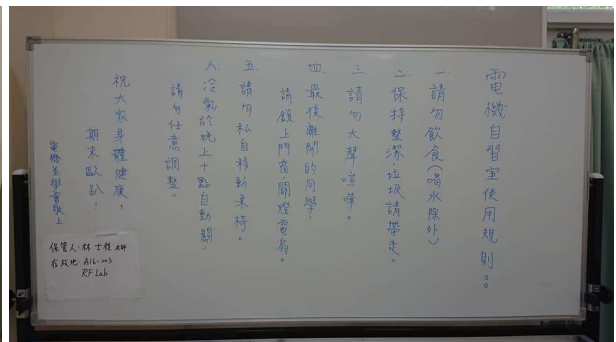 電機自習室使用規則：
一.請勿飲食(喝水除外)
二.保持整潔,垃圾請帶走。
三.請勿大聲喧嘩。
四.最後離開的同學,
請鎖上門窗,關燈電扇。
五.請勿私自移動桌椅。
六.冷氣於晚上十點自動關,
請勿任意調整。
祝大家身體健康,
期末歐趴,
電機系學會敬上
保管人:林士程
存放地:
RF-Lab